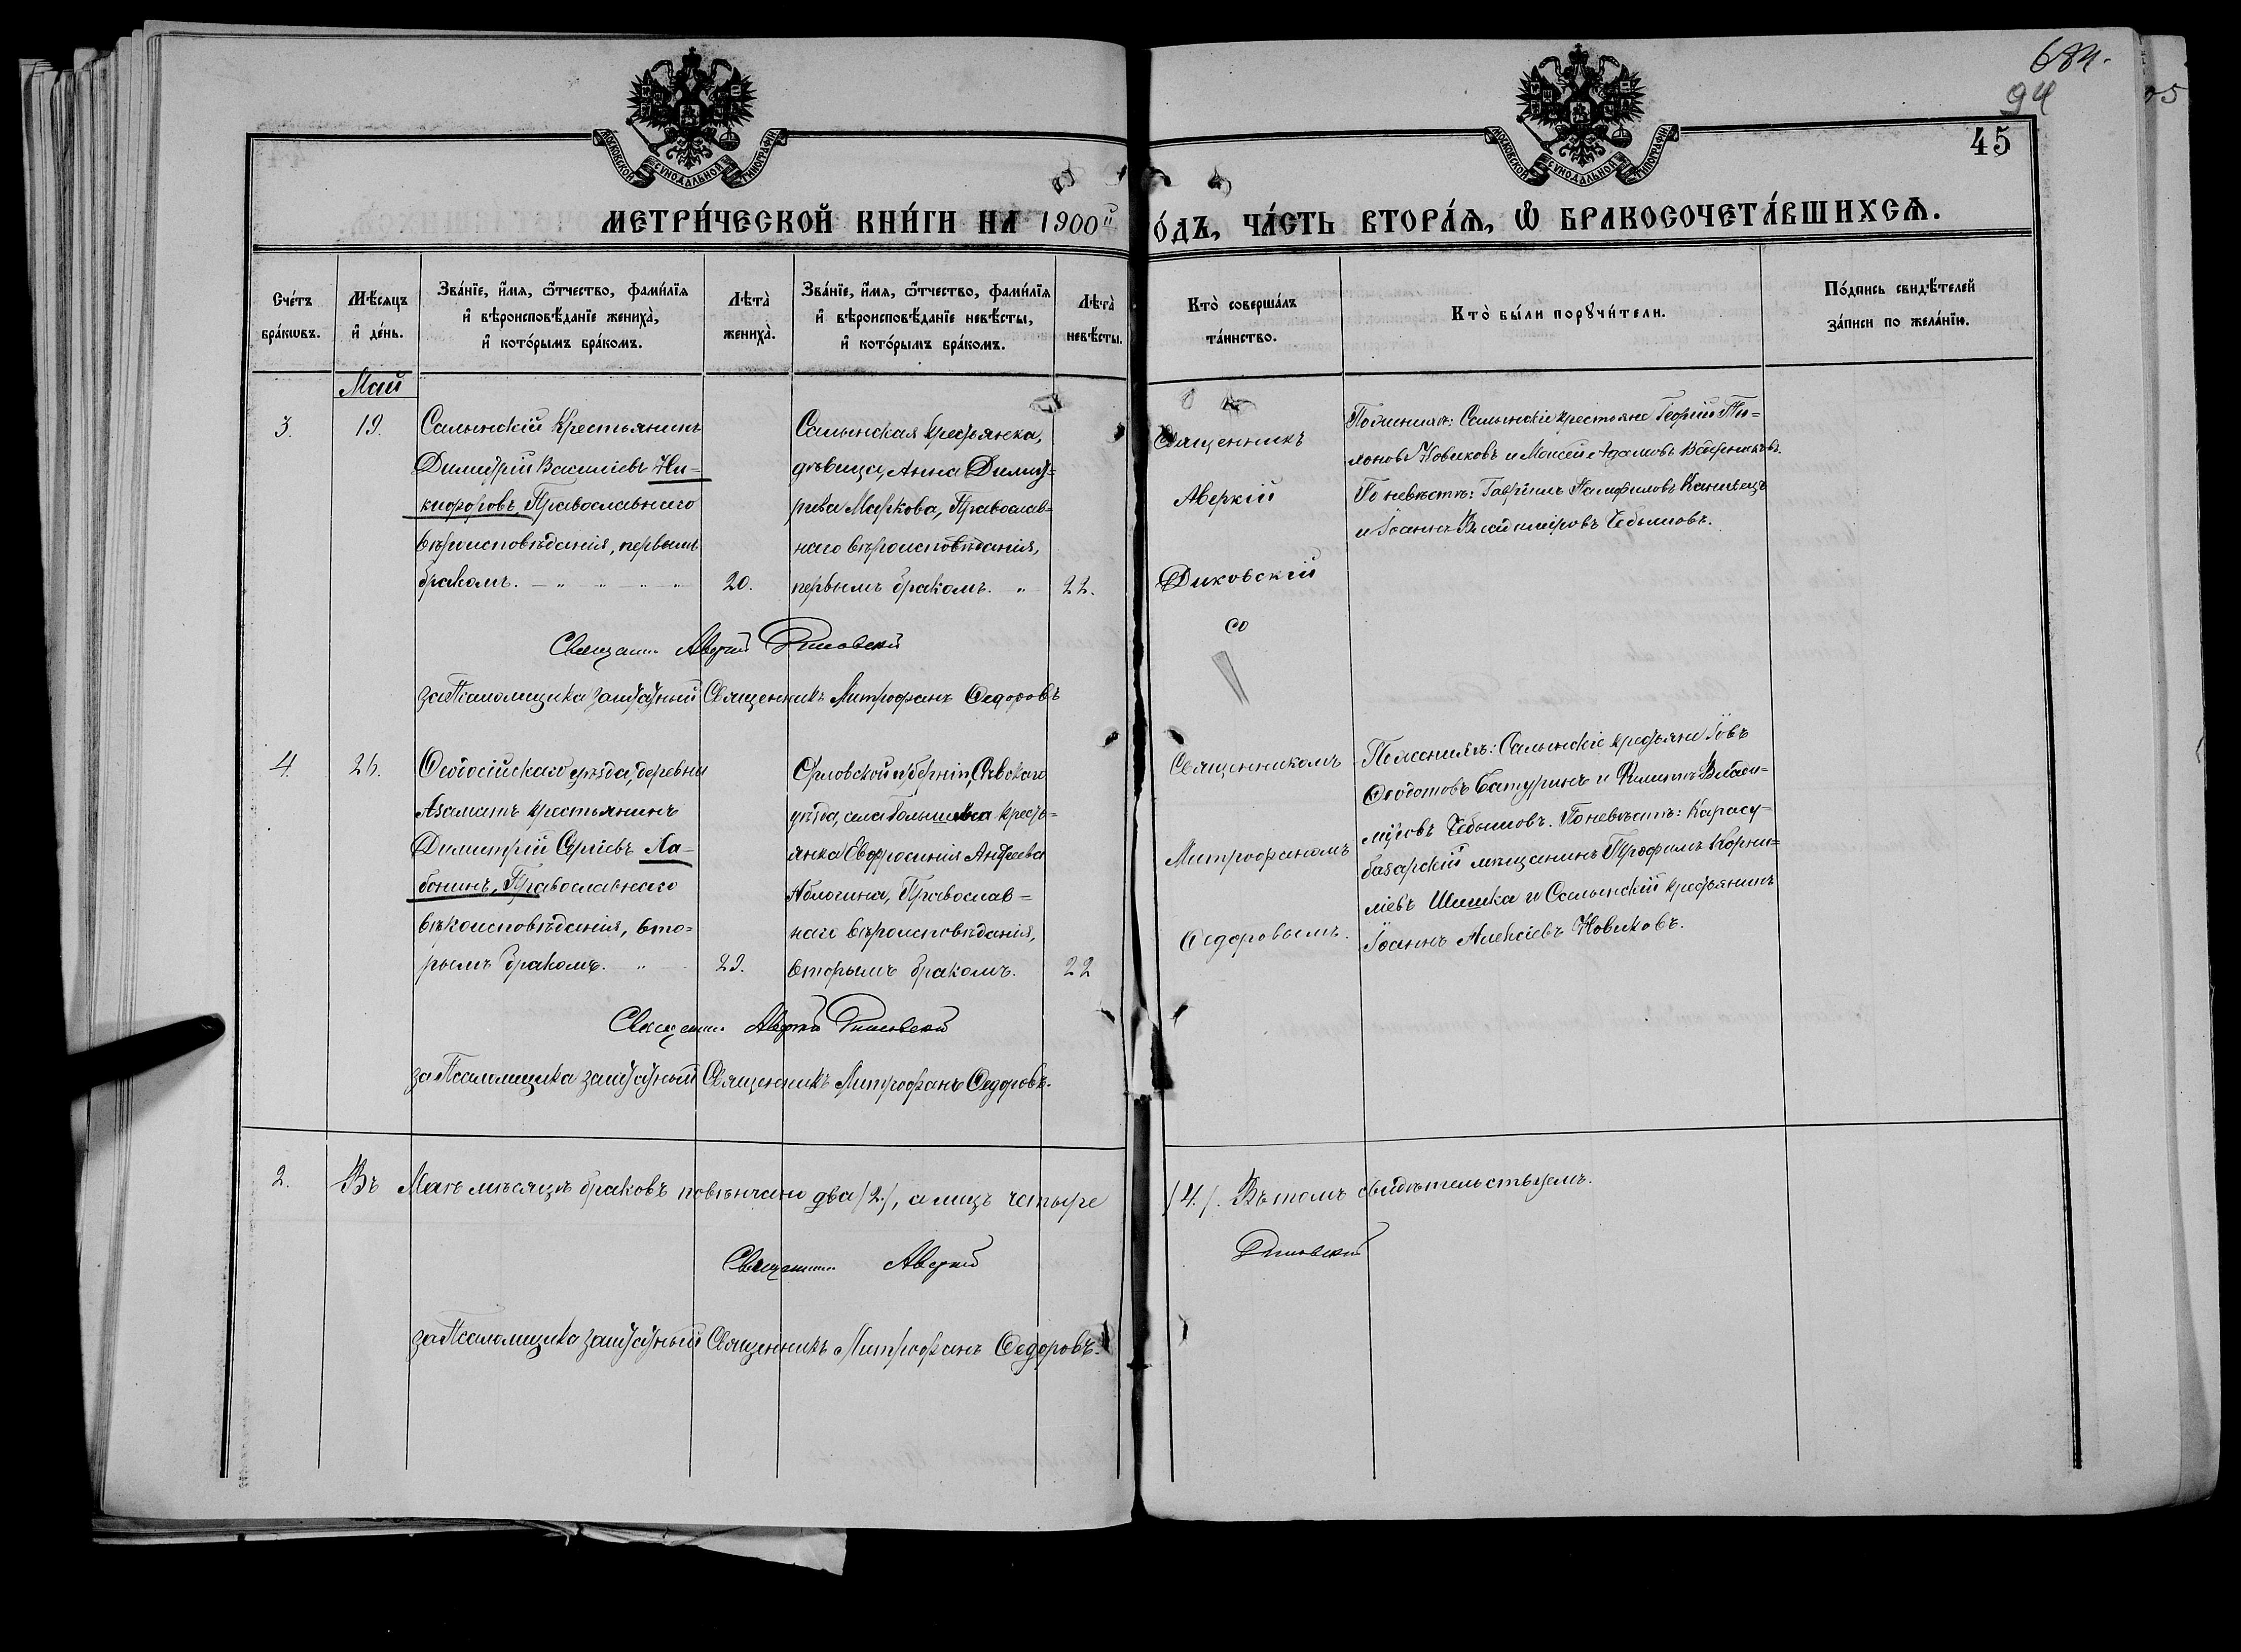 684.
94
45
05
МОСКОВСКОЙ СѴНОДАЛЬНОЙ ТИПОГРАФІИ
МОСКОВСКОЙ СѴНОДАЛЬНОЙ ТИПОГРАФІИ
МЕТРИ́ЧЕСКОЙ КНИ́ГИ НА 1900й
О́ДЪ, ЧА́СТЬ ВТОРА́Ѧ, Ѽ БРАКОСОЧЕТА́ВШИХСѦ.
Сче́тъ бра́кѡвъ.
Мѣ́сяцъ и҆ де́нь.
Зва́нїе, и҆́мя, ѻ҆́тчество, фами́лїя
и҆ вѣроисповѣ́данїе жениха̀,
и҆ кото́рымъ бра́комъ.
Лѣта̀ жениха̀.
Зва́нїе, и҆́мя, ѻ҆́тчество, фами́лїя
и҆ вѣроисповѣ́данїе невѣ́сты,
и҆ кото́рымъ бра́комъ.
Лѣта̀ невѣ́сты.
Кто̀ соверша́лъ та́инство.
Кто̀ бы́ли порꙋчи́тели.
По́дпись свидѣ́телей за́писи по жела́нїю.
Май
3.
19.
Салынскій крестьянинъ
Димитрій Василіевъ Ни=
кифоровъ, Православнаго
вѣроисповѣданія, первымъ
бракомъ.
20.
Салынская крестьянка,
дѣвица, Анна Димит=
ріева Маркова, Православ=
наго вѣроисповѣданія,
первымъ бракомъ.
22.
Священникъ
Аверкій
Диковскій
со
По женихѣ: Салынскіе крестьяне Георгій
Новиковъ и Моисей Адамовъ
По невѣстѣ: Гавріилъ Памфиловъ
и Іоаннъ Владиміровъ Чебышовъ.
Священникъ Аверкій Диковскій
за Псаломщика заштатный Священникъ Митрофанъ Федоровъ
4.
26.
Феодосійскаго уѣзда, деревни
Азаматъ крестьянинъ
Димитрій Сергіевъ Ла=
бонинъ, Православнаго
вѣроисповѣданія, вто=
рымъ бракомъ.
29.
Орловской губерніи, Сѣвскаго
уѣзда, села кресть=
янка Евфросинія Андреева
Аблогина, Православ=
наго вѣроисповѣданія,
вторымъ бракомъ.
22
Священникомъ
Митрофаномъ
Федоровымъ.
По женихѣ: Салынскіе крестьяне Іовъ
Батуринъ и
Чебышовъ. По невѣстѣ: Карасу=
базарскій мѣщанинъ Трофимъ Корни=
ліевъ Шишка и Салынскій крестьянинъ
Іоаннъ Алексіевъ Новиковъ.
Священникъ Аверкій Диковскій
за Псаломщика заштатный Священникъ Митрофанъ Федоровъ.
2.
Въ Маѣ мѣсяцѣ браковъ повѣнчано два /2/, а лицъ четыре
/4/. Въ томъ свидѣтельствуемъ.
Священникъ Аверкій
Диковскій
за Псаломщика заштатный Священникъ Митрофанъ Федоровъ.